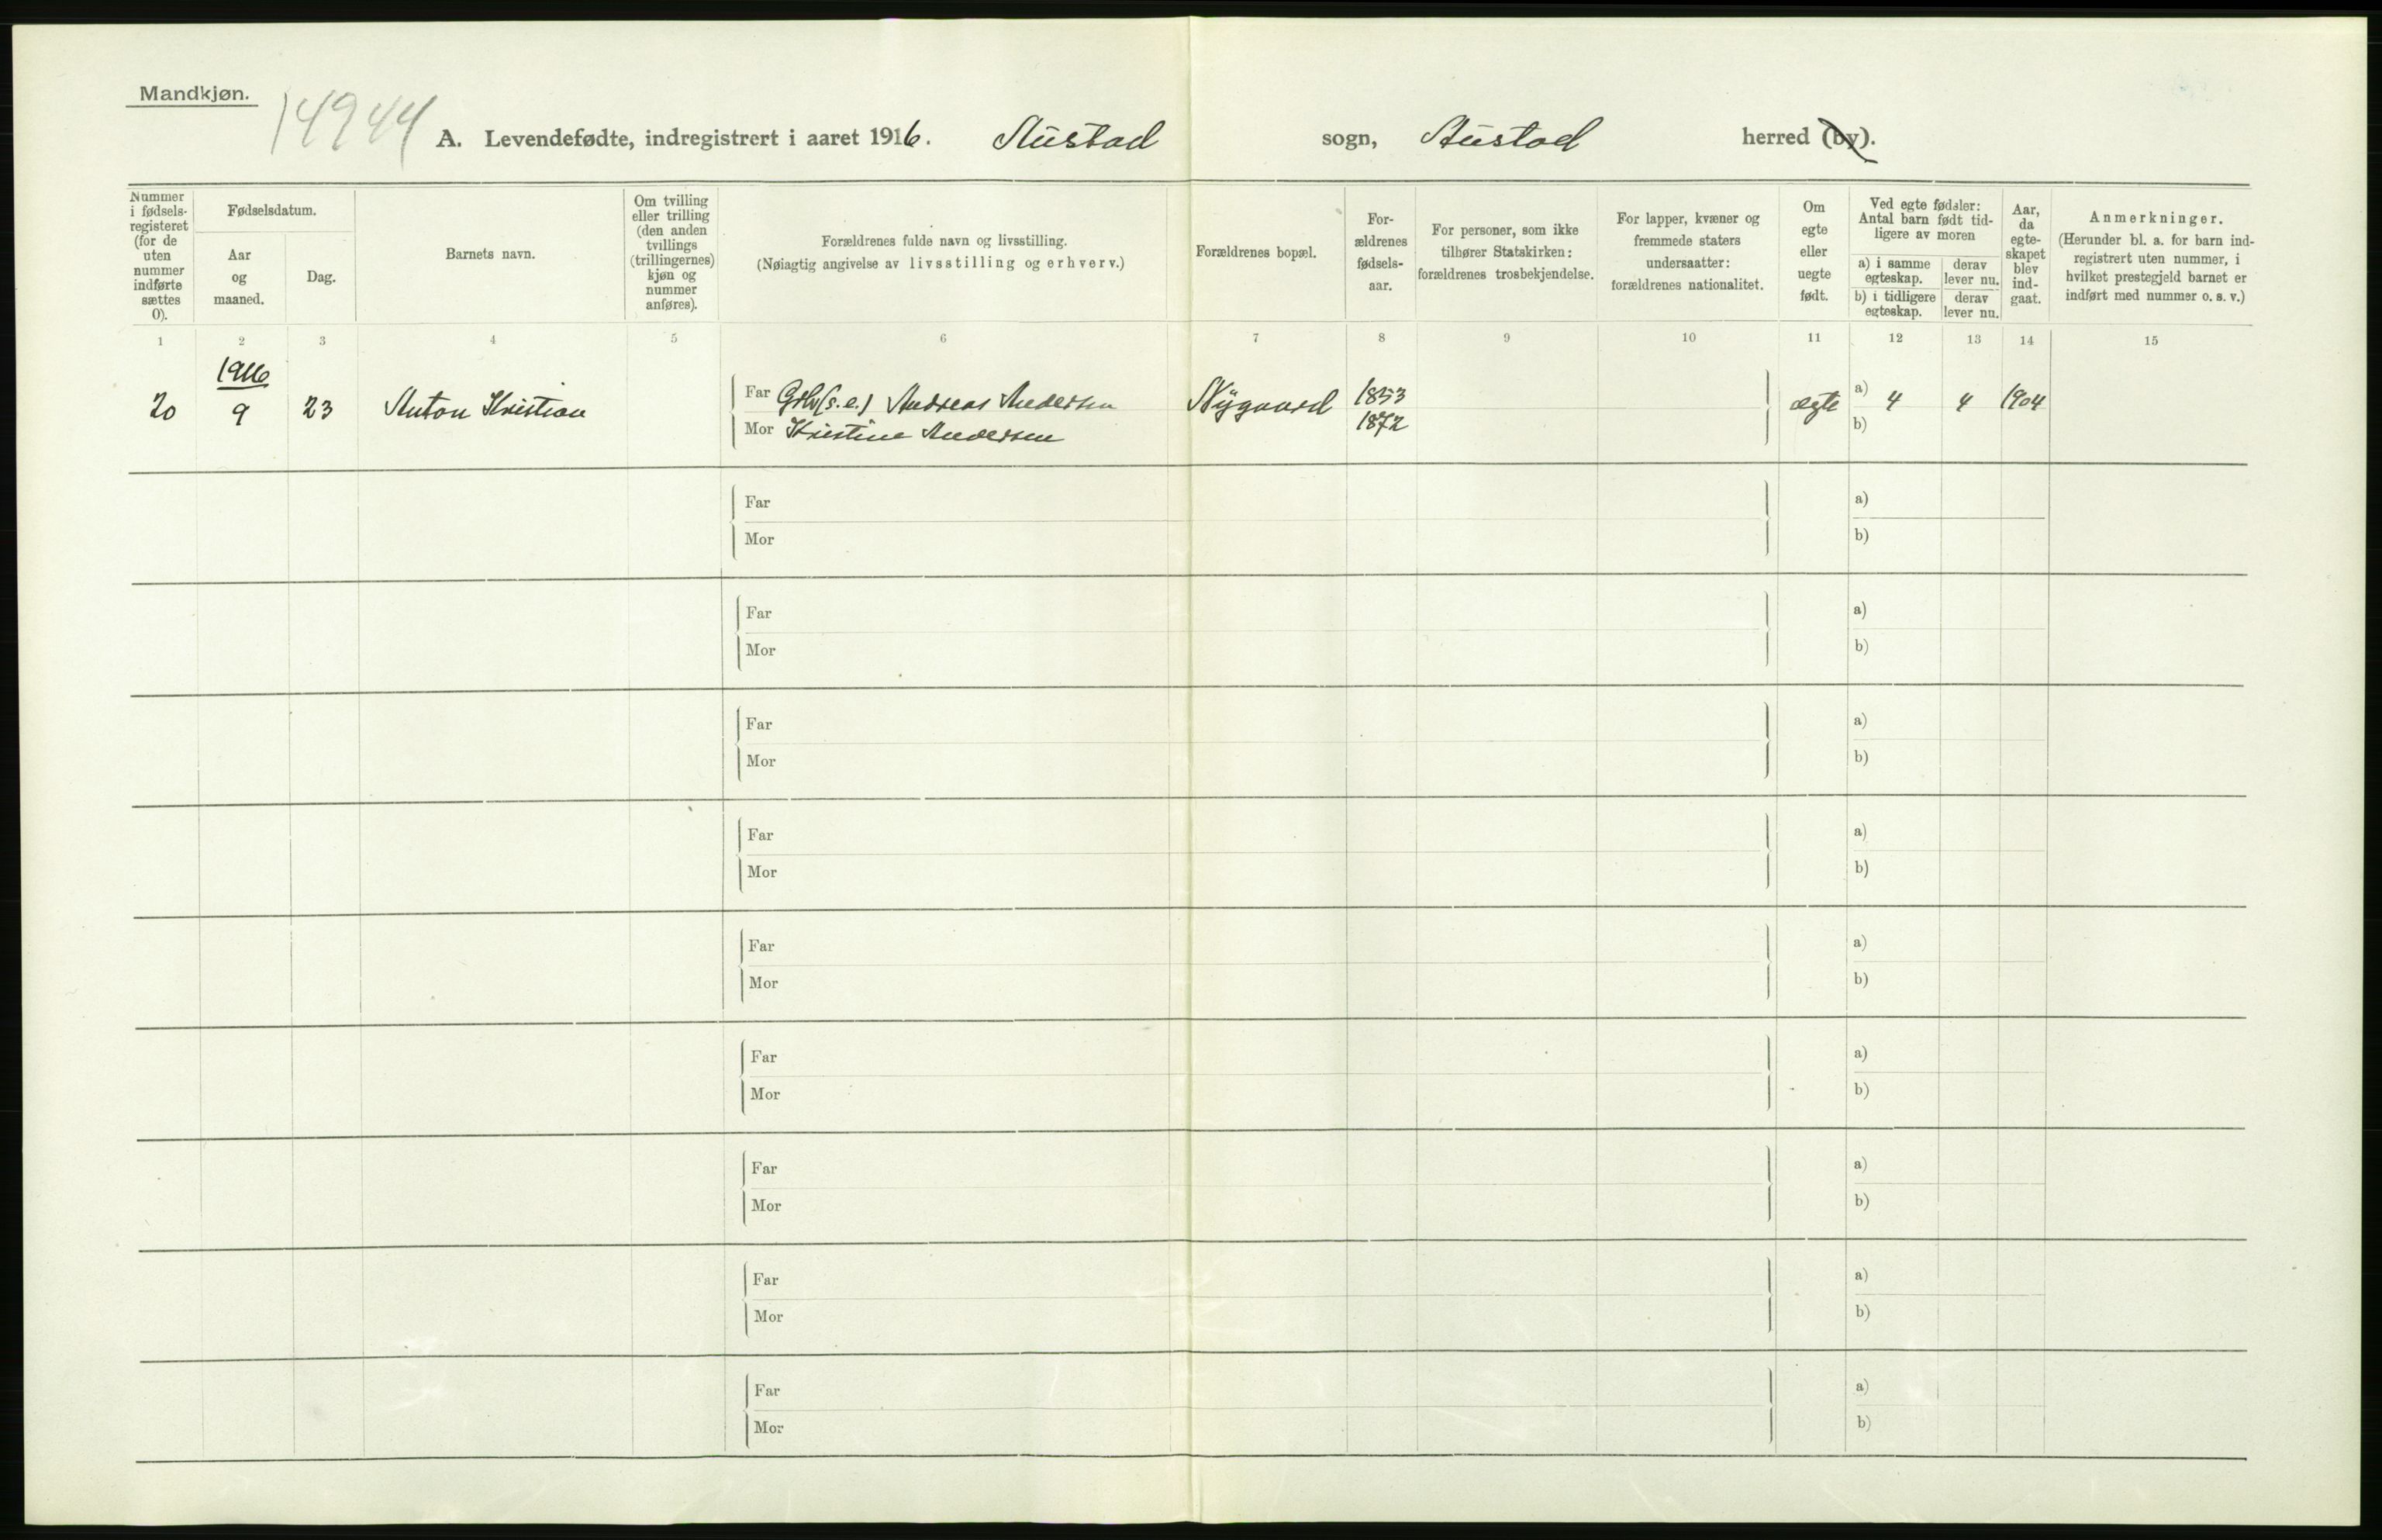 Mandkjøn.
14944
A. Levendefødte, indregistrert i aaret 1916. Austad sogn, Austad herred (by).
Nummer i fødsels-registeret (for de uten nummer indførte sættes 0).
Fødselsdatum.
Aar og maaned.
Dag.
Barnets navn.
Om tvilling eller trilling (den anden tvillings (trillingernes) kjøn og nummer anføres).
Forældrenes fulde navn og livsstilling.
(Nøiagtig angivelse av livsstilling og erhverv.)
Forældrenes bopæl.
For-ældrenes fødsels-aar.
For personer, som ikke tilhører Statskirken: forældrenes trosbekjendelse.
For lapper, kvæner og fremmede staters undersaatter: forældrenes nationalitet.
Om egte eller uegte født.
Ved egte fødsler: Antal barn født tid-ligere av moren
a) i samme egteskap.
derav lever nu.
b) i tidligere egteskap.
derav lever nu.
Aar, da egte-skapet blev ind-gaat.
Anmerkninger.
(Herunder bl. a. for barn ind-registrert uten nummer, i hvilket prestegjeld barnet er indført med nummer o. s. v.)
1 2 3 4 5 6 7 8 9 10 11 12 13 14 15
1916
20 9 23 Anton Kristian Far Grbr (s.e.) Andreas Andersen Nygaard 1853 ægte a) 4 4 1904
Mor Kristine Andersen 1872 b)
Far a)
Mor b)
Far a)
Mor b)
Far a)
Mor b)
Far a)
Mor b)
Far a)
Mor b)
Far a)
Mor b)
Far a)
Mor b)
Far a)
Mor b)
Far a)
Mor b)